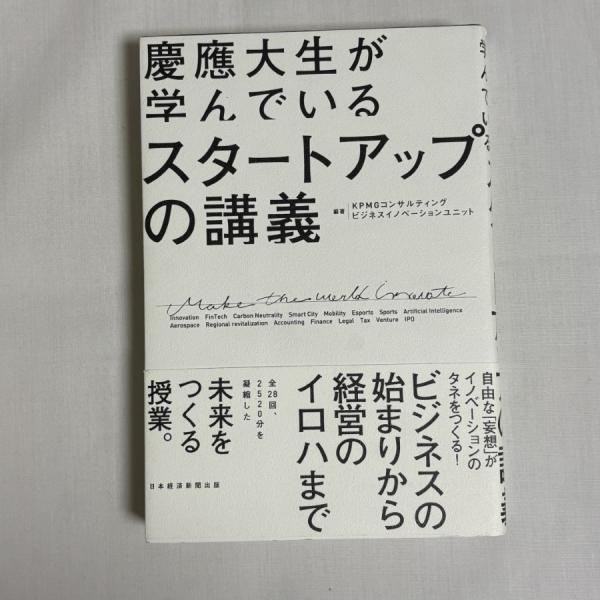 慶應大生が
学んでいる
スタートアップ
の講義
編著
KPMGコンサルティング
ビジネスイノベーションユニット
Make the world innovate
Innovation FinTech Carbon Neutrality Smart City Mobility Esports Sports Artificial Intelligence
Aerospace Regional revitalization Accounting Finance Legal Tax Venture IPO
自由な「妄想」が
イノベーションの
タネをつくる!
ビジネスの
始まりから
経営の
イロハまで
全28回、
2520分を
凝縮した
未来を
つくる
授業。
日本経済新聞出版
学んでいる